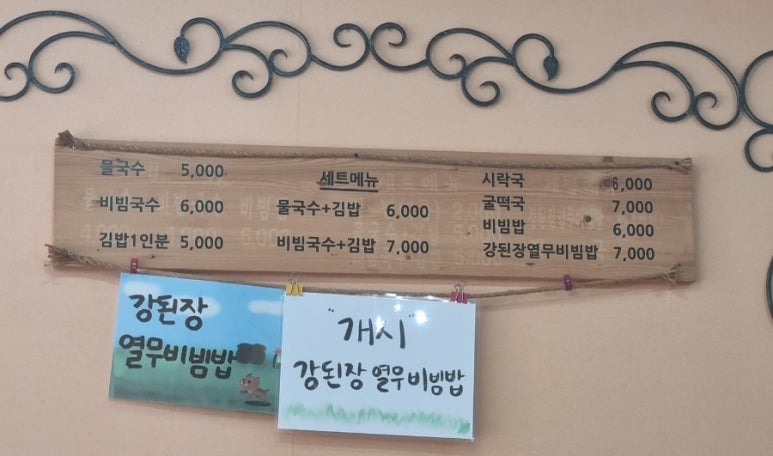 물국수 5,000
비빔국수 6,000
김밥1인분 5,000
세트메뉴
물국수+김밥 6,000
비빔국수+김밥 7,000
시락국 6,000
굴떡국 7,000
비빔밥 6,000
강된장열무비빔밥 7,000
강된장
열무비빔밥
"개시"
강된장 열무비빔밥